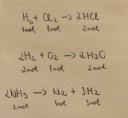 H₂ + Cl₂ → 2HCl
1mol 1mol 2mol
2H₂ + O₂ → 2H₂O
2mol 1mol 2mol
2NH₃ → N₂ + 3H₂
2mol 1mol 3mol